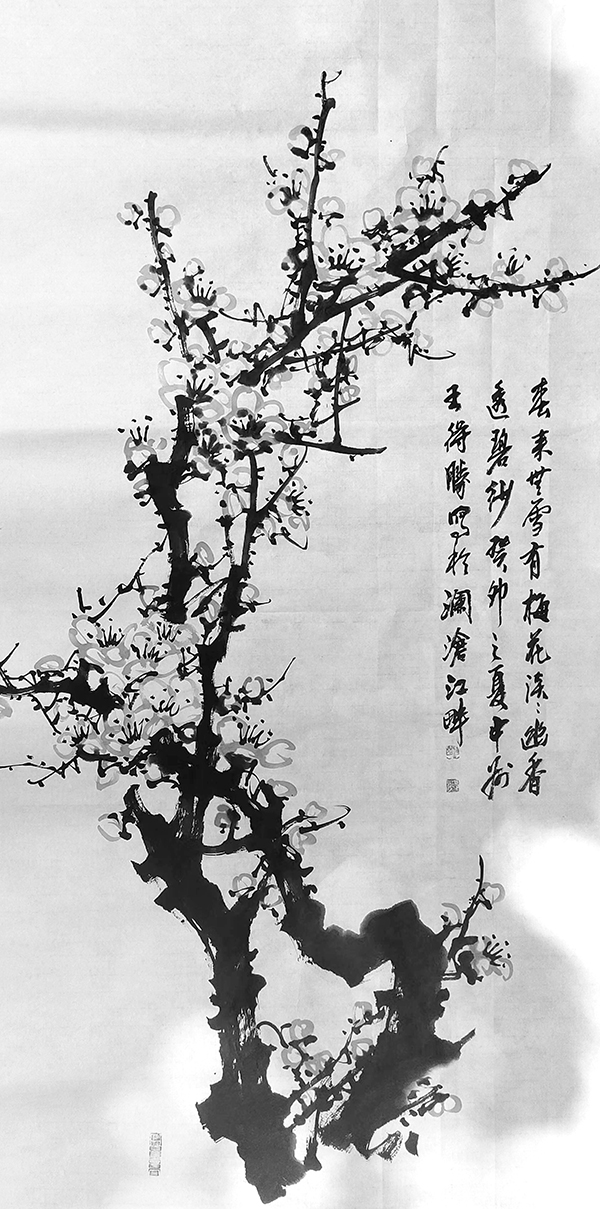 春来無雪有梅花淡淡幽香
透碧纱癸卯之夏中州
王得勝写於澜滄江畔